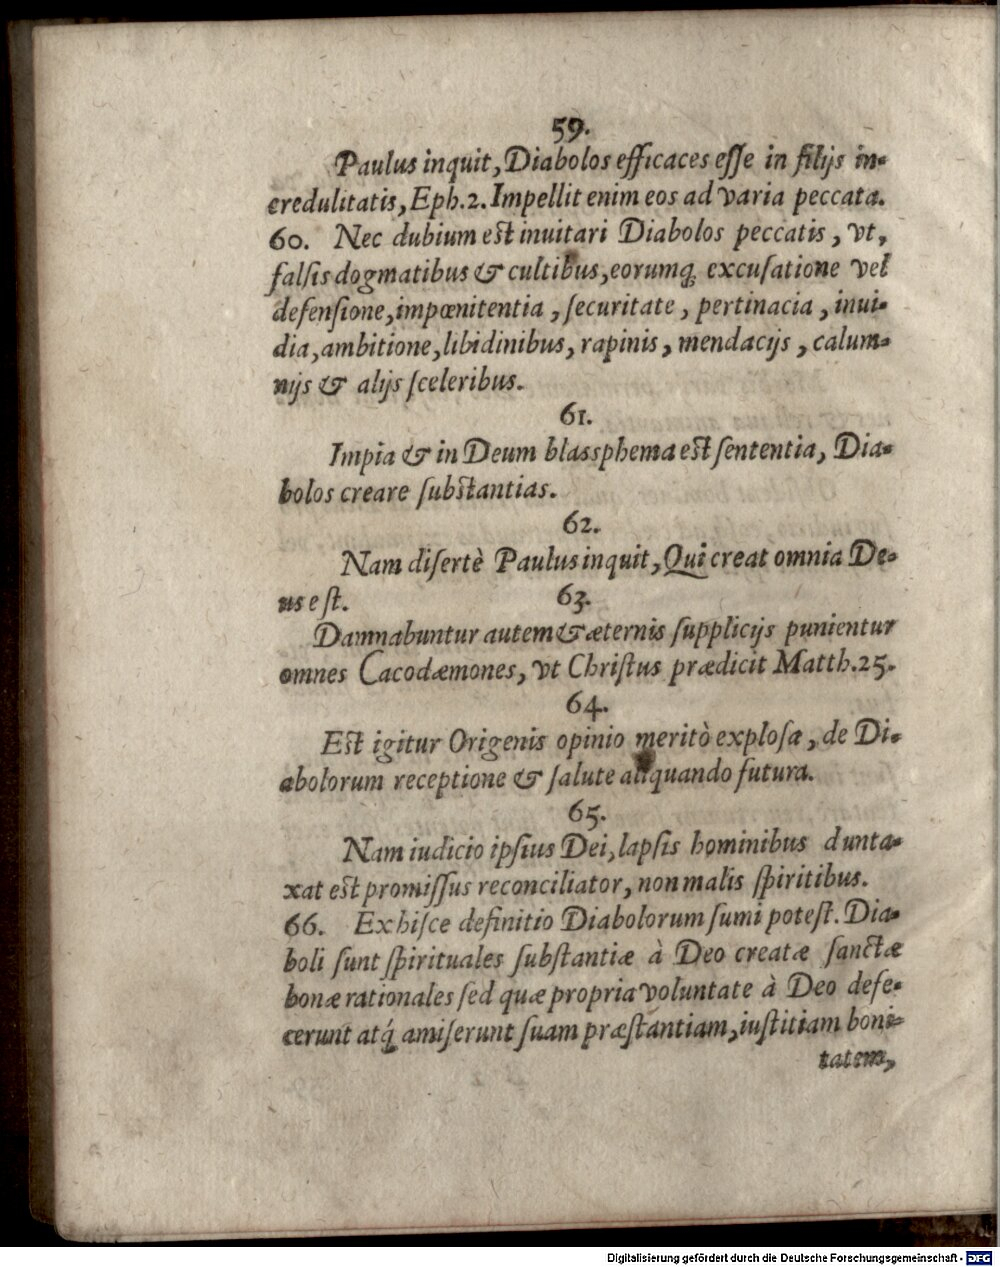 59.
Paulus inquit, Diabolos efficaces esse in filijs in-
credulitatis, Eph. 2. Impellit enim eos ad varia peccata.
60. Nec dubium est inuitari Diabolos peccatis, vt,
falsis dogmatibus & cultibus, eorumq; excusatione vel
defensione, impœnitentia, securitate, pertinacia, inui-
dia, ambitione, libidinibus, rapinis, mendacijs, calum-
nijs & alijs sceleribus.
61.
Impia & in Deum blassphema est sententia, Dia-
bolos creare substantias.
62.
Nam disertè Paulus inquit, Qui creat omnia De-
us est.
63.
Damnabuntur autem & æternis supplicijs punientur
omnes Cacodæmones, vt Christus prædicit Matth. 25.
64.
Est igitur Origenis opinio meritò explosa, de Di-
abolorum receptione & salute aliquando futura.
65.
Nam iudicio ipsius Dei, lapsis hominibus dunta-
xat est promissus reconciliator, non malis spiritibus.
66. Ex hisce definitio Diabolorum sumi potest. Dia-
boli sunt spirituales substantiæ à Deo creatæ sanctæ
bonæ rationales sed quæ propria voluntate à Deo defe-
cerunt atq́; amiserunt suam præstantiam, iustitiam boni-
tatem,
Digitalisierung gefördert durch die Deutsche Forschungsgemeinschaft - DFG